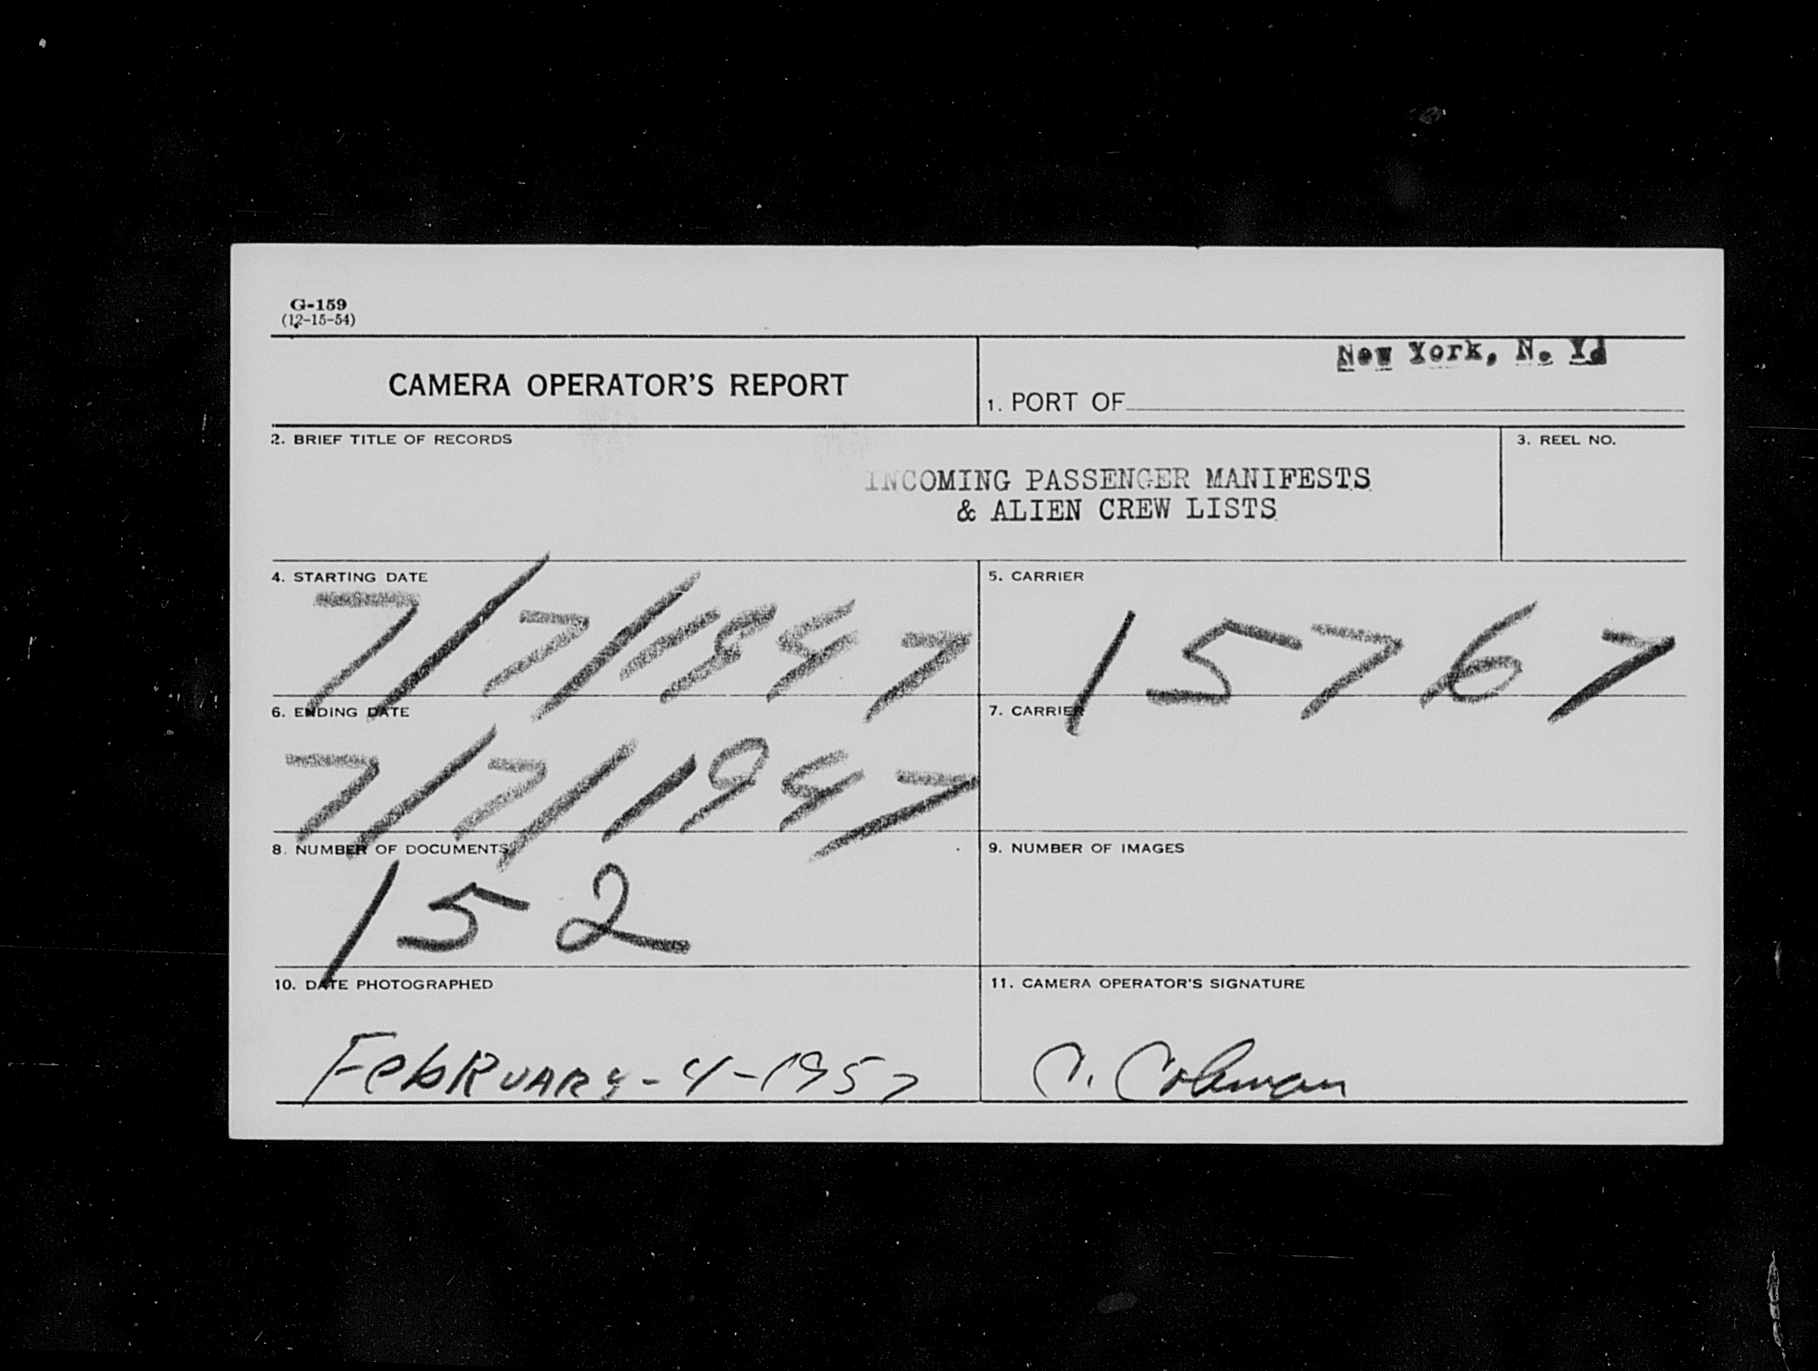 G-159
(12-15-54)
CAMERA OPERATOR'S REPORT
New York, N. Y.
1. PORT OF
2. BRIEF TITLE OF RECORDS
3. REEL NO.
INCOMING PASSENGER MANIFESTS
& ALIEN CREW LISTS
4. STARTING DATE
7/7/1947
5. CARRIER
15767
6. ENDING DATE
7/7/1947
7. CARRIER
8. NUMBER OF DOCUMENTS
152
9. NUMBER OF IMAGES
10. DATE PHOTOGRAPHED
FebRUARY-4-1957
11. CAMERA OPERATOR'S SIGNATURE